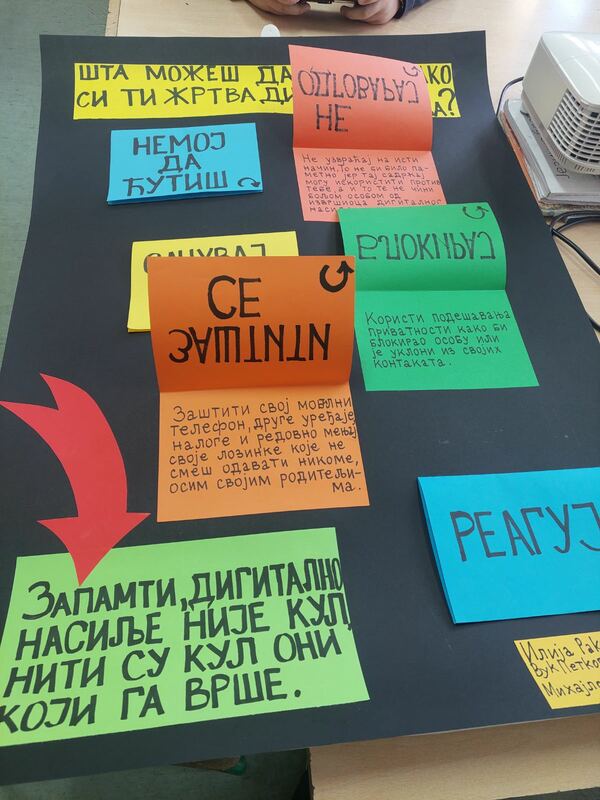 ШТА МОЖЕШ ДА АКО
СИ ТИ ЖРТВА
НЕ
ОДГОВАРАЈ
Не узвраћај на исти
начин. То не би било па-
метно јер тај садржај
могу искористити против
тебе, а и то те не чини
бољом особом од
извршиоца дигиталног
НЕМОЈ
ДА
ЋУТИШ
БЛОКИРАЈ
Користи подешавања
приватности како би
блокирао особу или
је уклони из својих
контаката.
САЧУВАЈ
ЗАШТИТИ
СЕ
Заштити свој мобилни
телефон, друге уређаје,
налоге и редовно мењај
своје лозинке које не
смеш одавати никоме,
осим својим родитељи-
ма.
РЕАГУЈ
ЗАПАМТИ, ДИГИТАЛНО
НАСИЉЕ НИЈЕ КУЛ,
НИТИ СУ КУЛ ОНИ
КОЈИ ГА ВРШЕ.
Илија
Вук